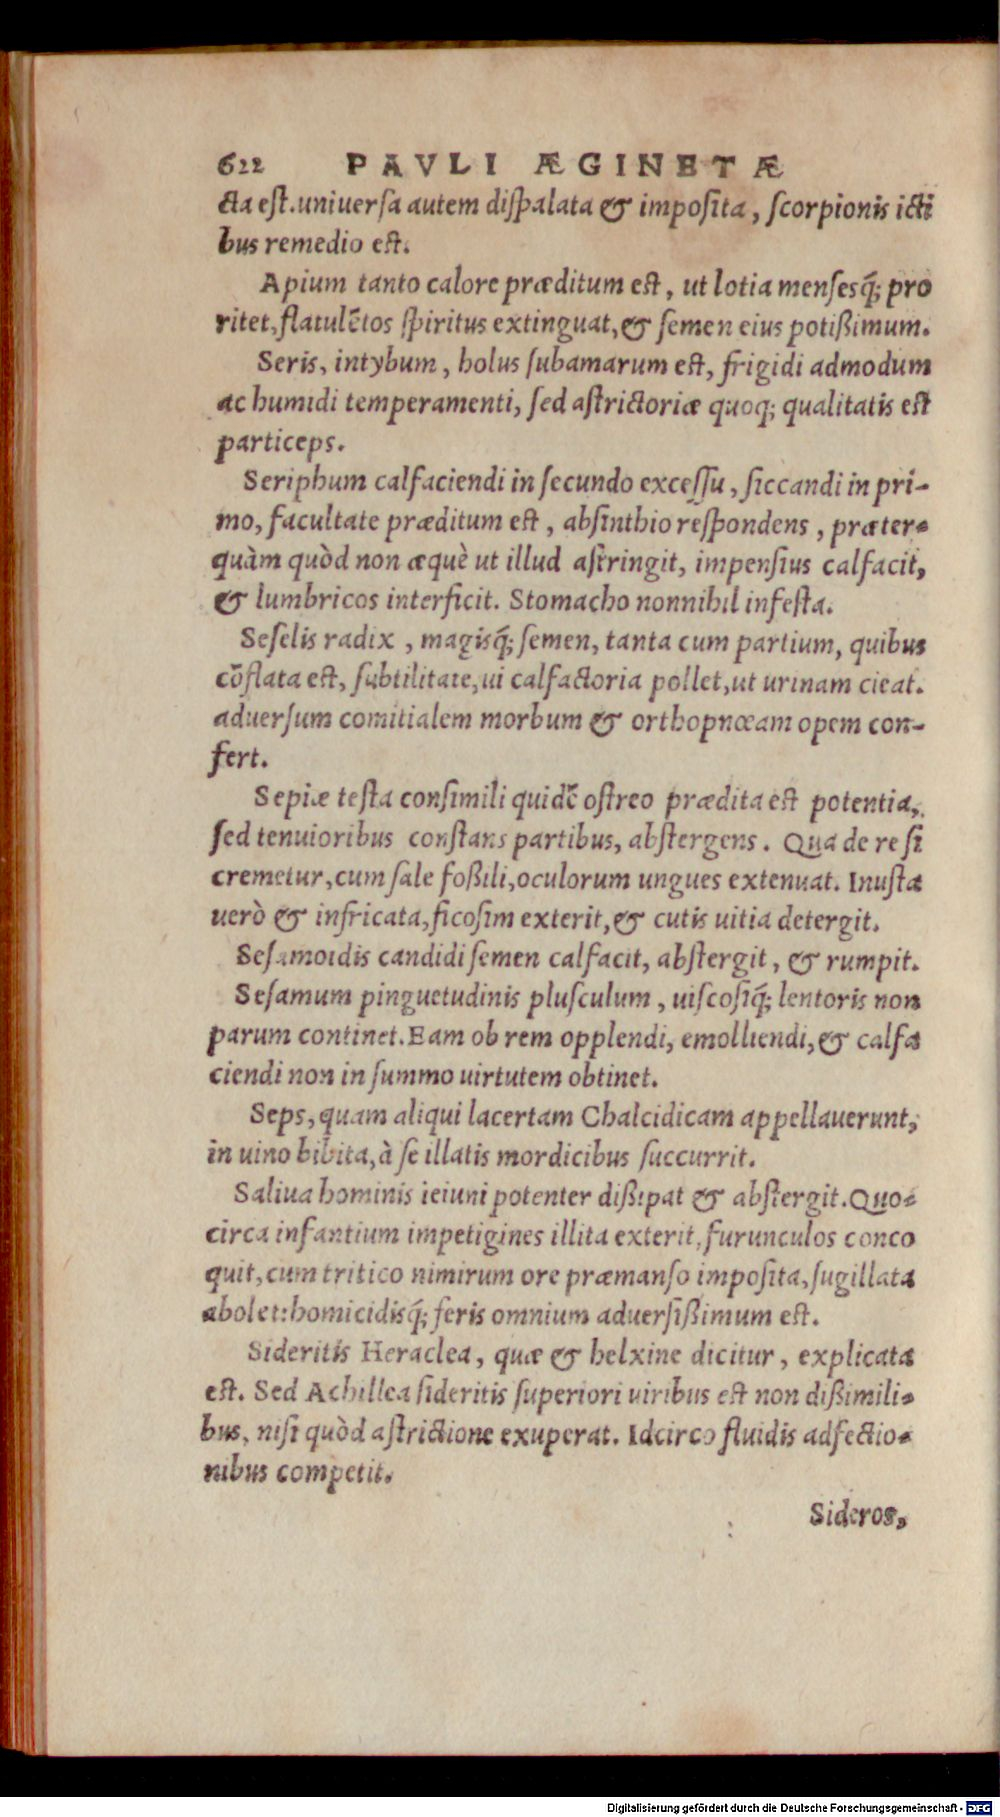 622 PAVLI ÆGINETÆ
cta est. uniuersa autem dispalata & imposita, scorpionis icti
bus remedio est.
Apium tanto calore præditum est, ut lotia mensesq́; pro
ritet, flatulẽtos spiritus extinguat, & semen eius potißimum.
Seris, intybum, holus subamarum est, frigidi admodum
ac humidi temperamenti, sed astrictoriæ quoq; qualitatis est
particeps.
Seriphum calfaciendi in secundo excessu, siccandi in pri-
mo, facultate præditum est, absinthio respondens, præter-
quàm quòd non æquè ut illud astringit, impensius calfacit,
& lumbricos interficit. Stomacho nonnihil infesta.
Seselis radix, magisq́; semen, tanta cum partium, quibus
cõflata est, subtilitate, ui calfactoria pollet, ut urinam cieat.
aduersum comitialem morbum & orthopnœam opem con-
fert.
Sepiæ testa consimili quidẽ ostreo prædita est potentia,
sed tenuioribus constans partibus, abstergens. Qua de re si
cremetur, cum sale foßili, oculorum ungues extenuat. Inusta
uerò & infricata, ficosim exterit, & cutis uitia detergit.
Sesamoidis candidi semen calfacit, abstergit, & rumpit.
Sesamum pinguetudinis plusculum, uiscosiq́; lentoris non
parum continet. Eam ob rem opplendi, emolliendi, & calfa
ciendi non in summo uirtutem obtinet.
Seps, quam aliqui lacertam Chalcidicam appellauerunt,
in uino bibita, à se illatis mordicibus succurrit.
Saliua hominis ieiuni potenter dißipat & abstergit. Quo-
circa infantium impetigines illita exterit, furunculos conco
quit, cum tritico nimirum ore præmanso imposita, sugillata
abolet: homicidisq́; feris omnium aduersißimum est.
Sideritis Heraclea, quæ & helxine dicitur, explicata
est. Sed Achillea sideritis superiori uiribus est non dißimili-
bus, nisi quòd astrictione exuperat. Idcirco fluidis adfectio-
nibus competit.
Sideros,
Digitalisierung gefördert durch die Deutsche Forschungsgemeinschaft - DFG